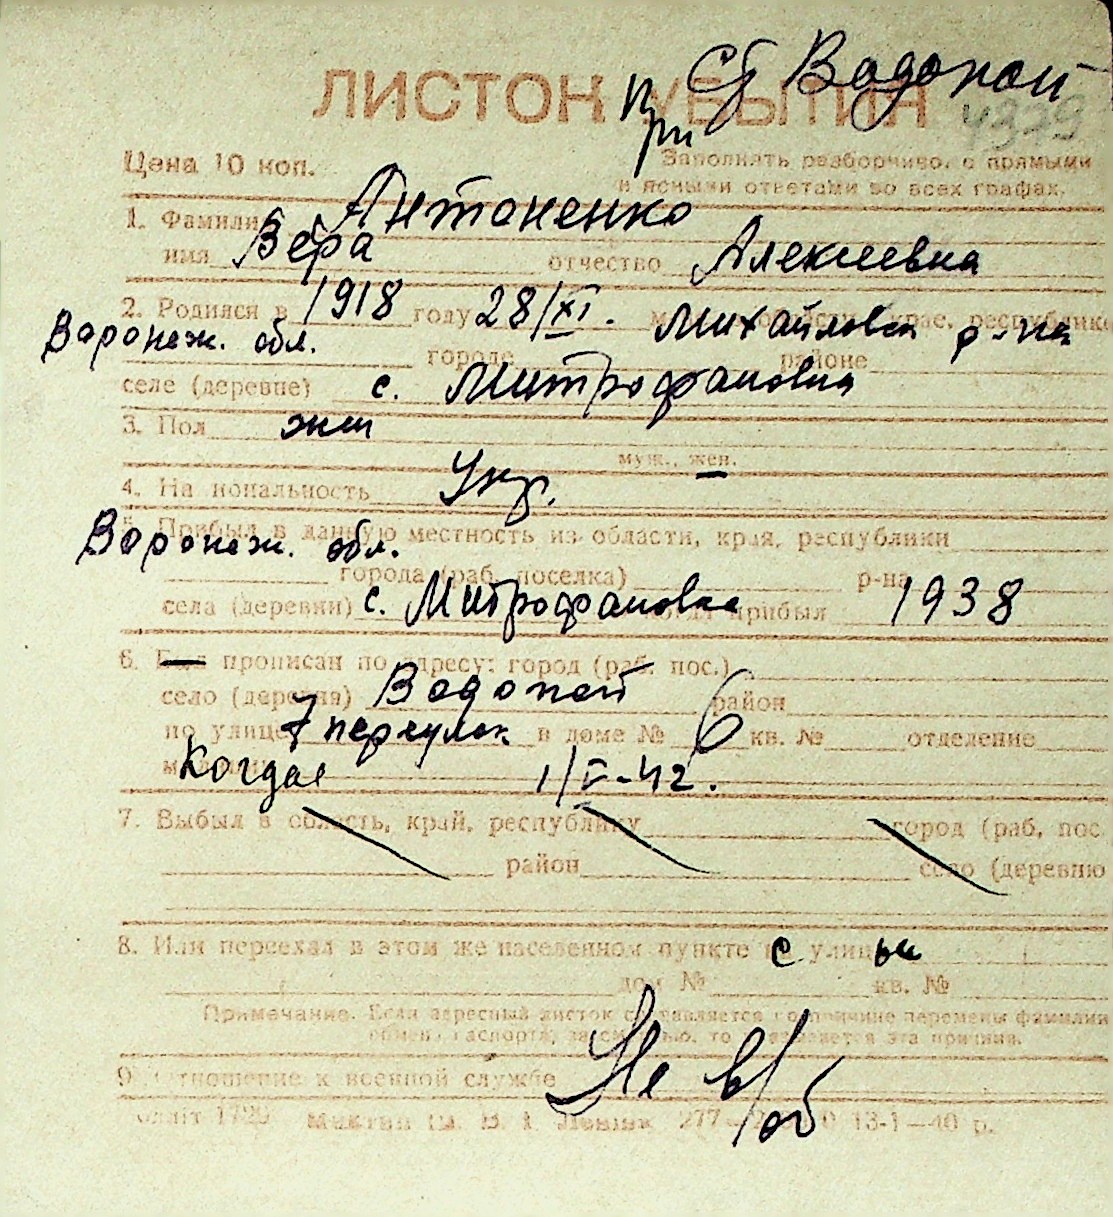 Ст Водопой
ЛИСТОК ПриУБЫТИЯ
4339
Цена 10 коп.
Заполнять разборчиво, с прямыми
и ясными ответами во всех графах.
1. Фамилия Антоненко
имя Вера отчество Алексеевна
2. Родился в 1918 году 28/XI. Михайловск р-на
Воронеж. обл. городе районе
селе (деревне) с. Митрофановка
3. Пол жен
муж., жен.
4. Национальность Укр.
5. Прибыл в данную местность из области, края, республики
Воронеж. обл.
города (раб. поселка) р-на
села (деревни) с. Митрофановка когда прибыл 1938
6. Был прописан по адресу: город (раб. пос.)
село (деревня) Водопой район
по улице 7 переулок в доме № 6 кв. № отделение
Когда 1/V-42.
7. Выбыл в область, край, республику город (раб. пос.
район село (деревню
8. Или переехал в этом же населенном пункте с улицы
дом № кв. №
Примечание. Если адресный листок составляется по причине перемены фамилии
обмена паспорта, то
эта причина.
9. Отношение к военной службе Не в/об
277 13-1—40 р.